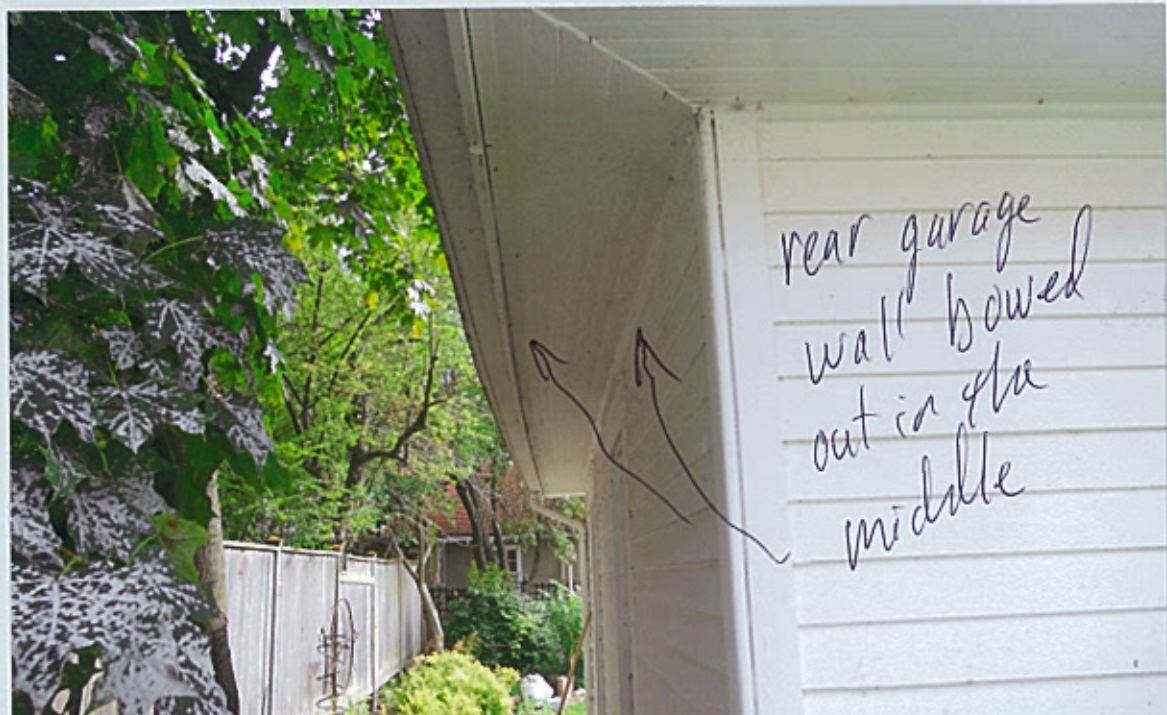 rear garage
wall bowed
out in the
middle